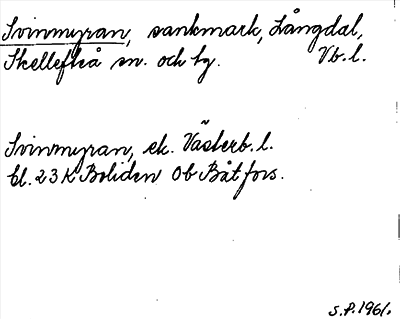 Svinmyran, sankmark, Långdal,
Skellefteå sn. och tg. Vb. l.
Svinmyran, ek. Västerb. l.
bl. 23 K Boliden Ob Båtfors.
S.P. 1961.